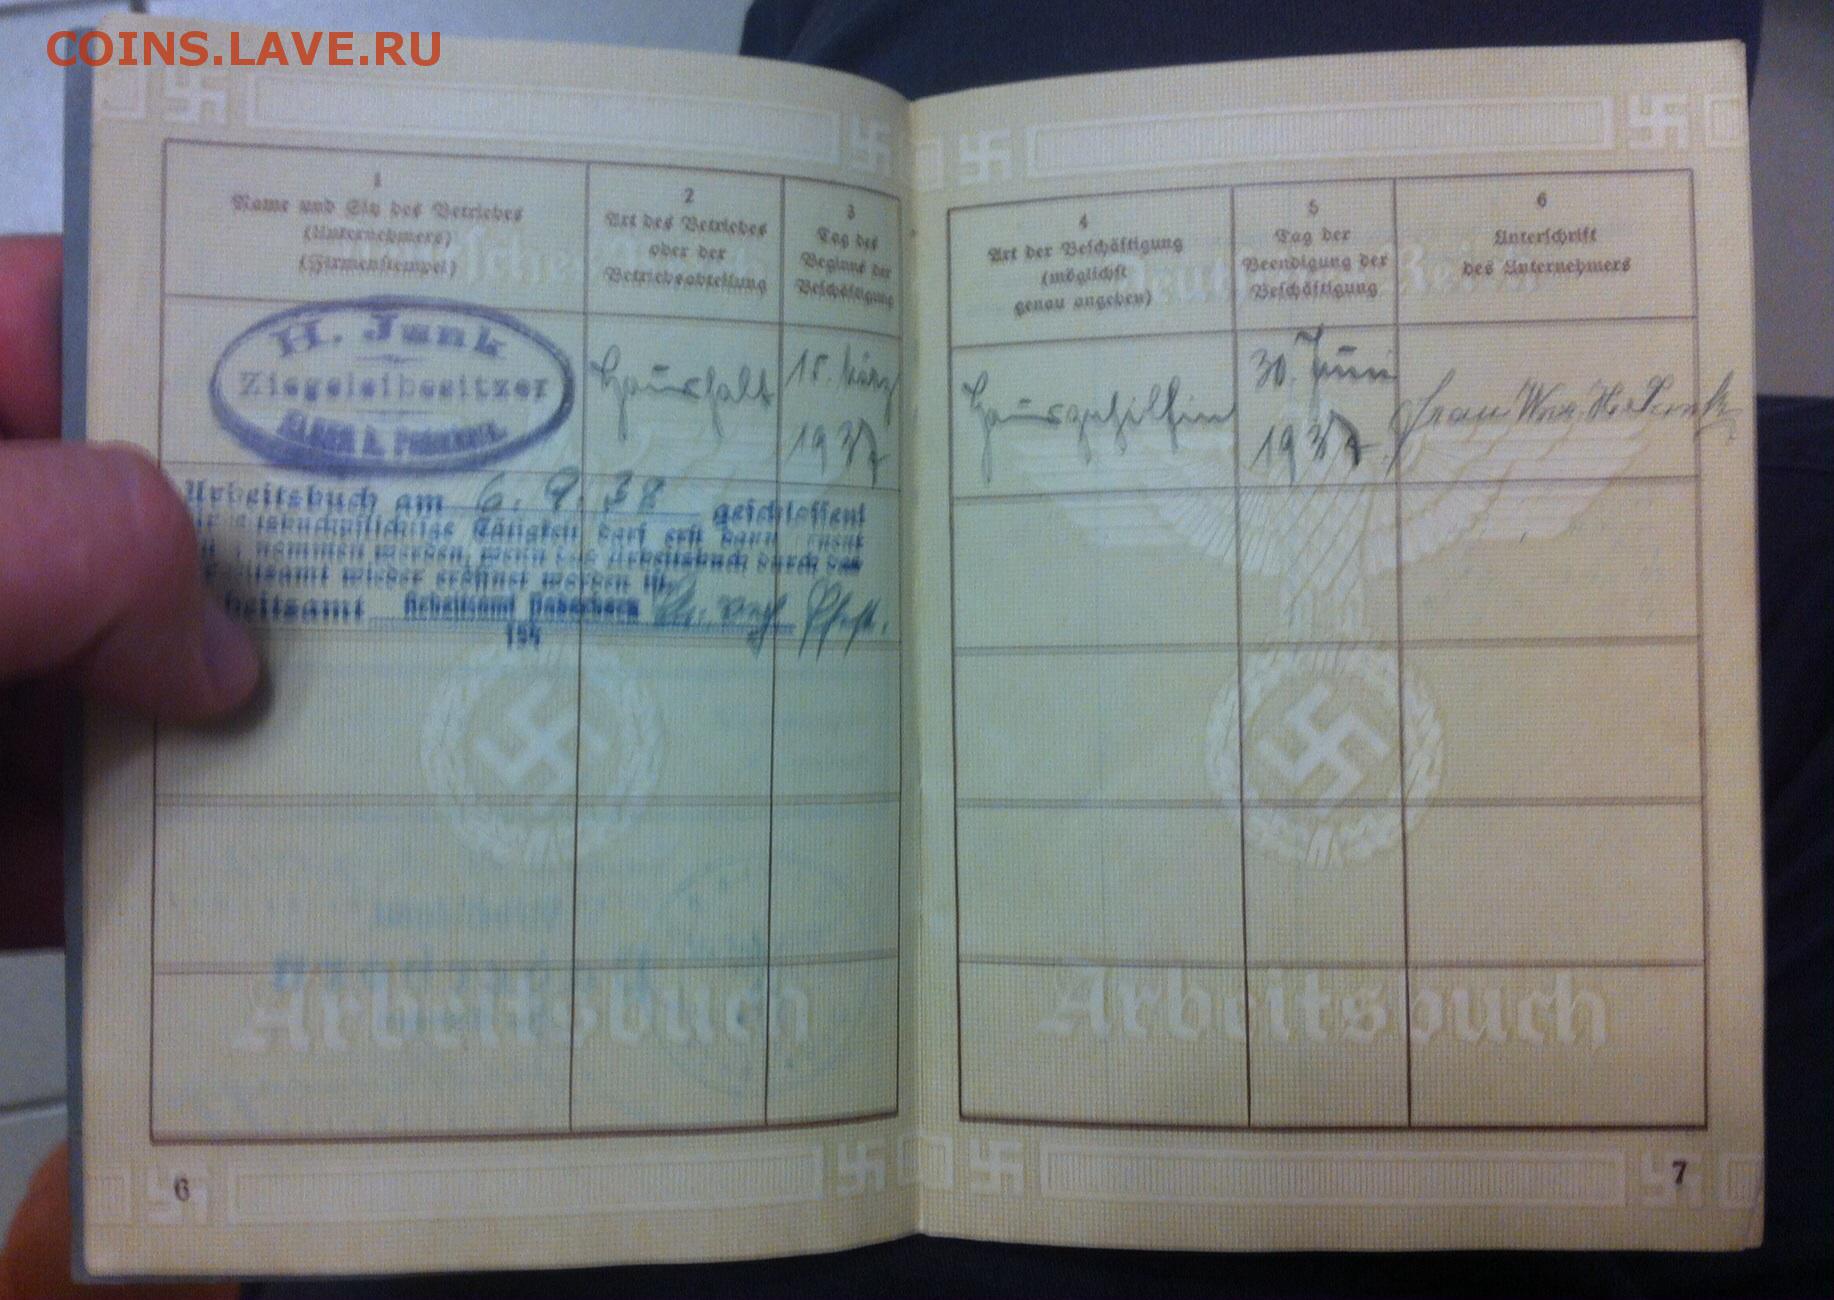 COINS.LAVE.RU
1
Name und Sitz des Betriebes
(Unternehmers)
(Firmenstempel)
2
Art des Betriebes
oder der
Betriebsabteilung
3
Tag des
Beginns der
Beschäftigung
H. Junk
Ziegeleibesitzer
Haushalt
15. März
1937
Arbeitsbuch am 6. 9. 38 geschlossen!
Tätigkeit darf erst dann
nommen werden, wenn das Arbeitsbuch durch das
wieder eröffnet worden ist.
Arbeitsamt Paderborn
194
Arbeitsbuch
6
4
Art der Beschäftigung
(möglichst
genau angeben)
5
Tag der
Beendigung der
Beschäftigung
6
Unterschrift
des Unternehmers
Hausgehilfin
30. Juni
1937
Frau
Arbeitsbuch
7